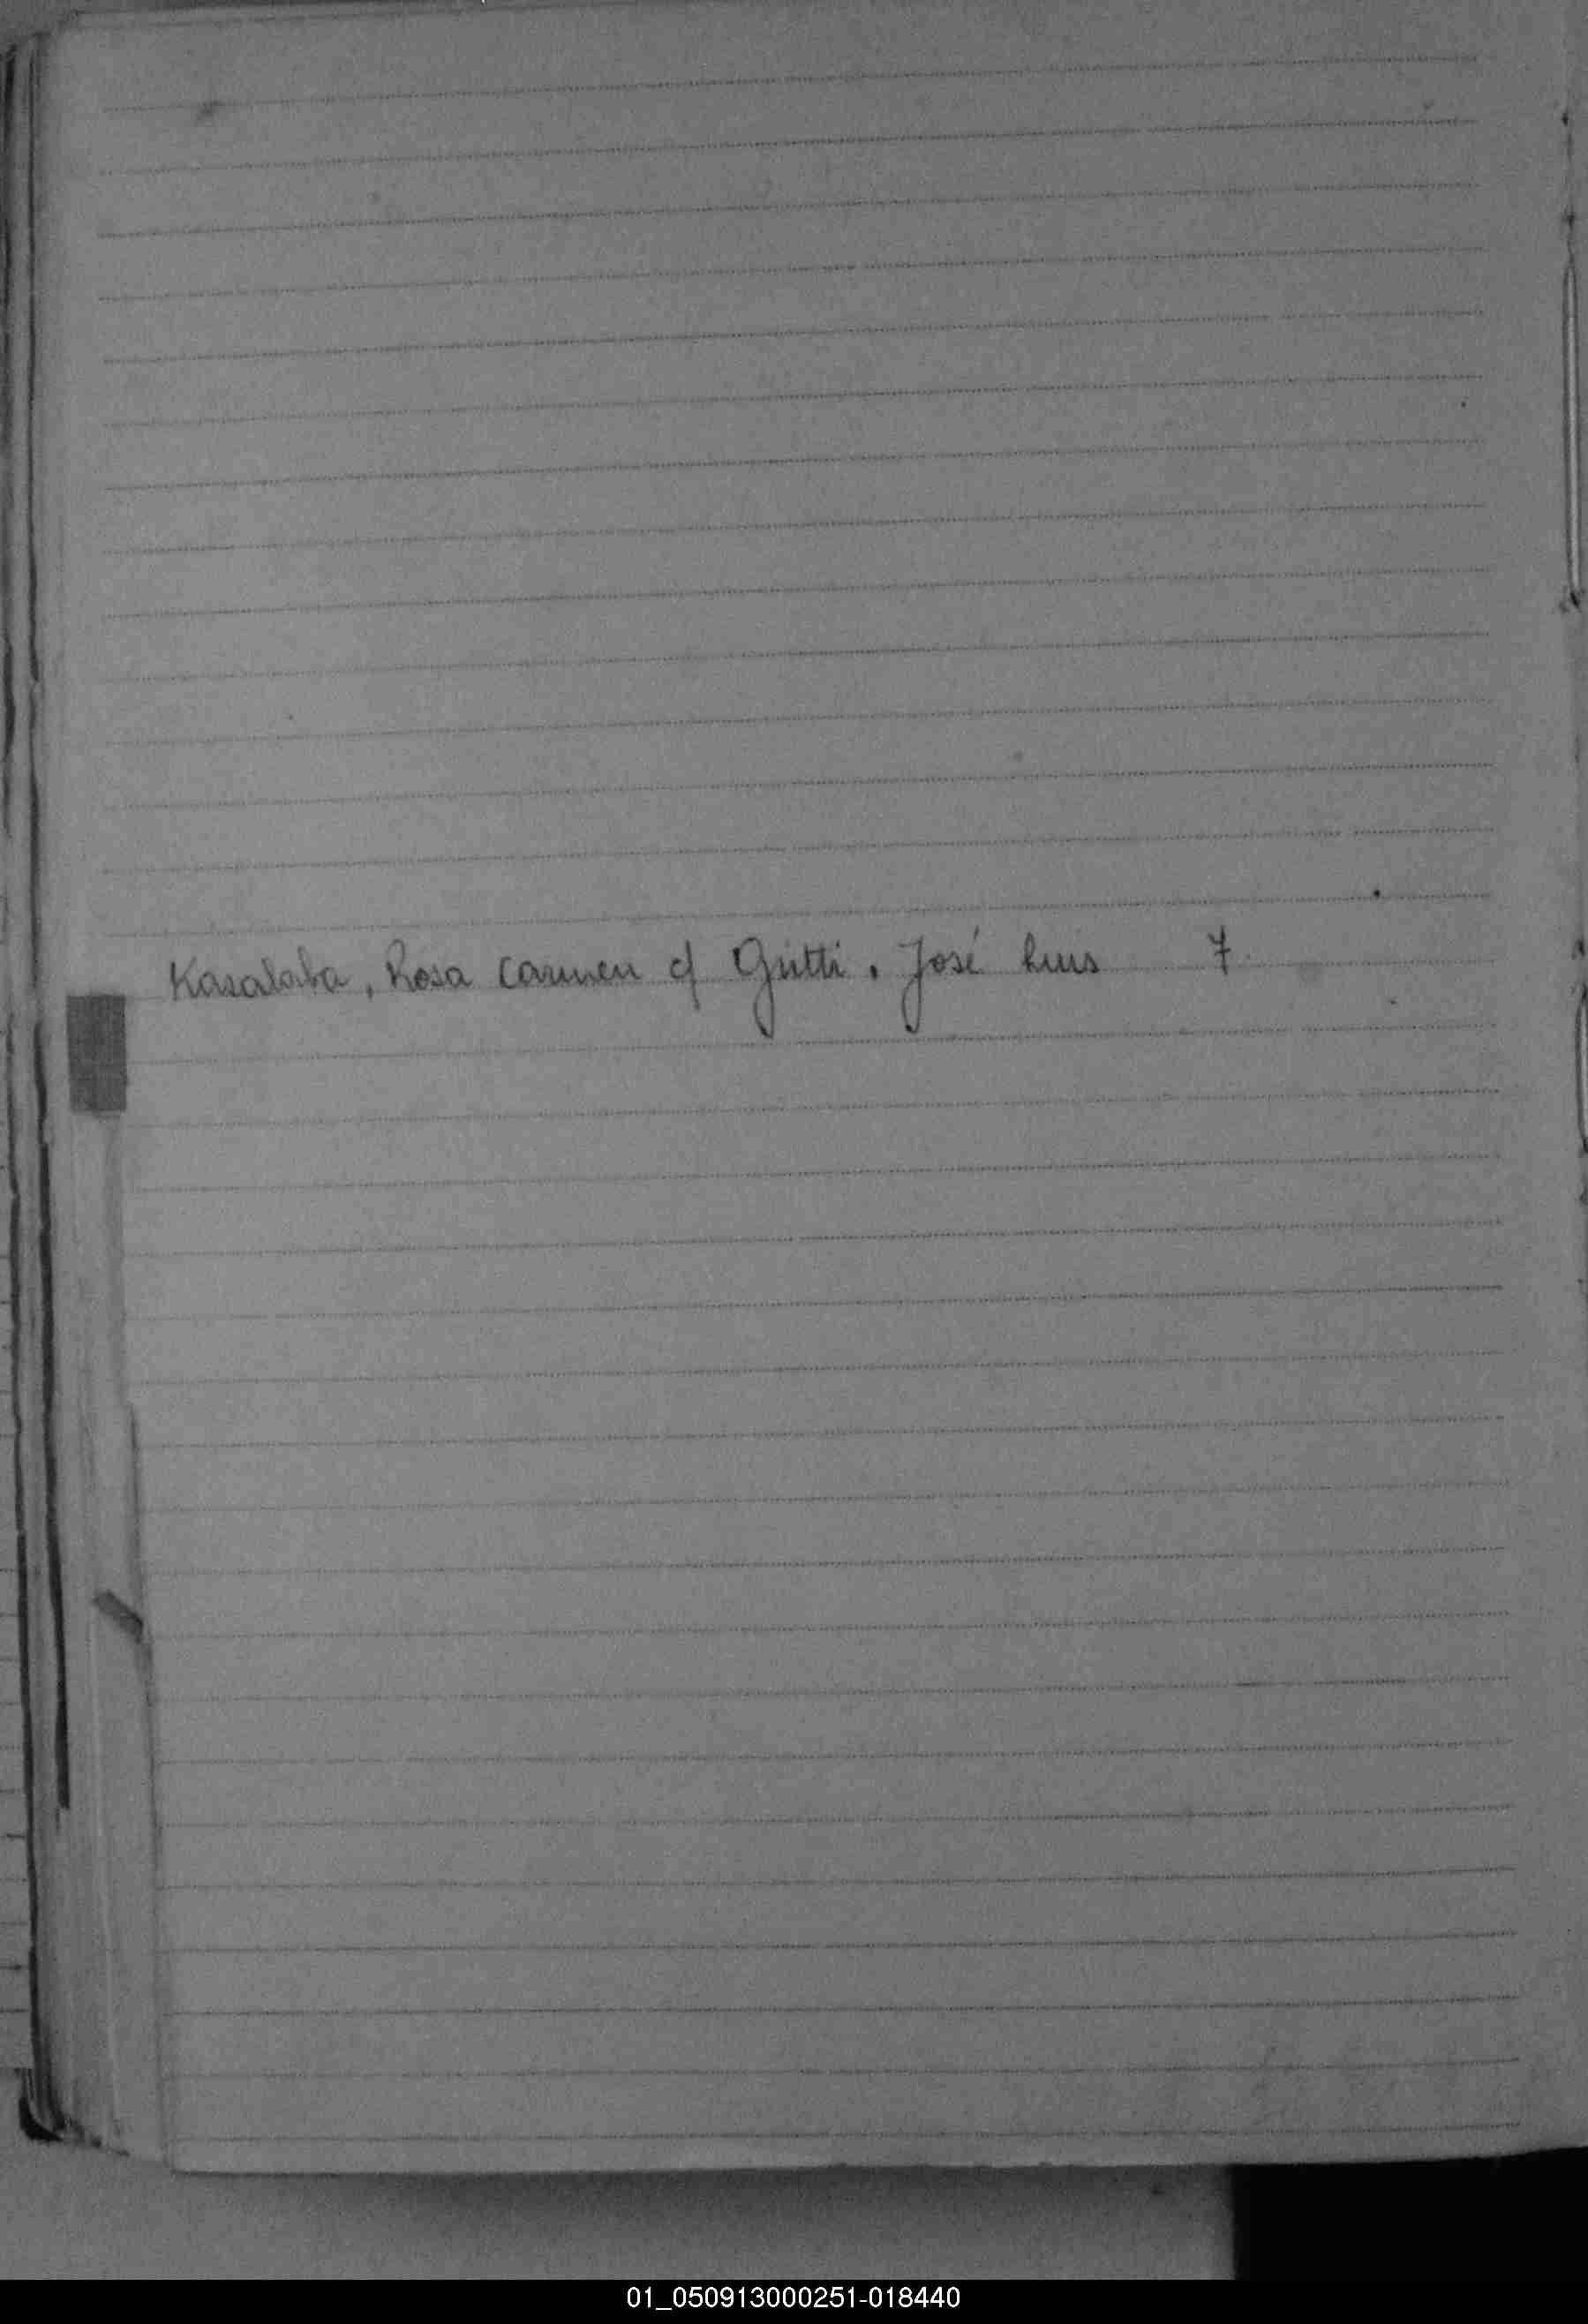 Kasalaba, Rosa Carmen c/ Giutti, José Luis 7
01_050913000251-018440